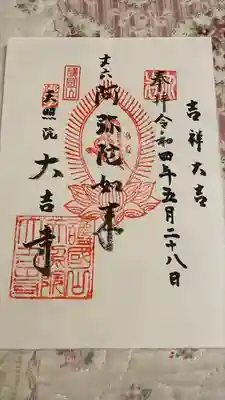 吉祥大吉
奉拝 令和四年五月二十八日
丈六 阿弥陀如来
天照院
大吉寺